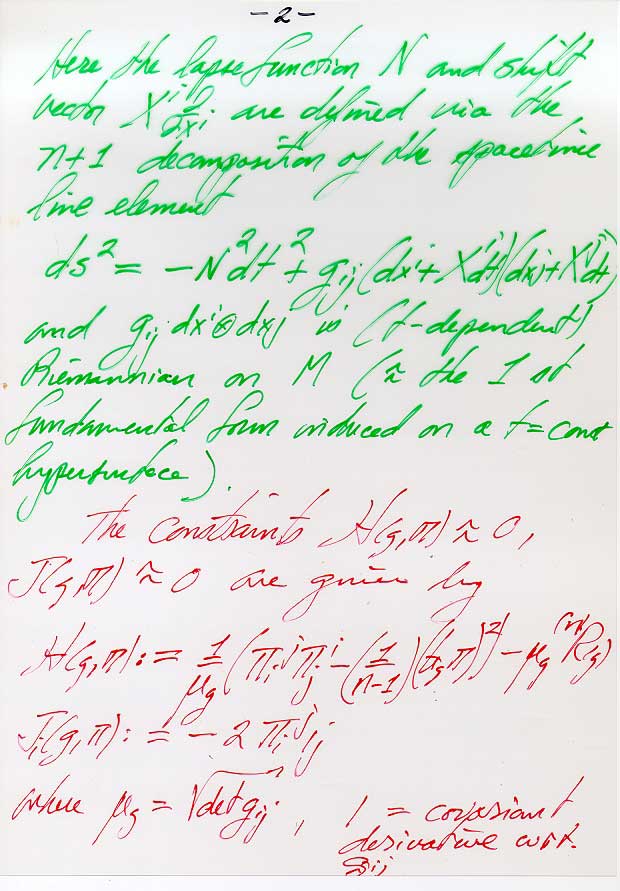 -2-
Here the lapse function N and shift
vector X^i ∂/∂x^i are defined via the
n+1 decomposition of the spacetime
line element
ds² = -N²dt² + g_ij (dx^i + X^i dt)(dx^j + X^j dt)
and g_ij dx^i ⊗ dx^j is (t-dependent)
Riemannian on M (≈ the 1st
fundamental form induced on a t=const
hypersurface).
The constraints H(g,π) ≈ 0,
J(g,π) ≈ 0 are given by
H(g,π) := 1/μ_g (π_i^j π_j^i - (1/(n-1)) (tr_g π)²) - μ_g ^(n)R(g)
J_i(g,π) := -2 π_i^j |j
where μ_g = √det g_ij , | = covariant
derivative w.r.t.
g_ij